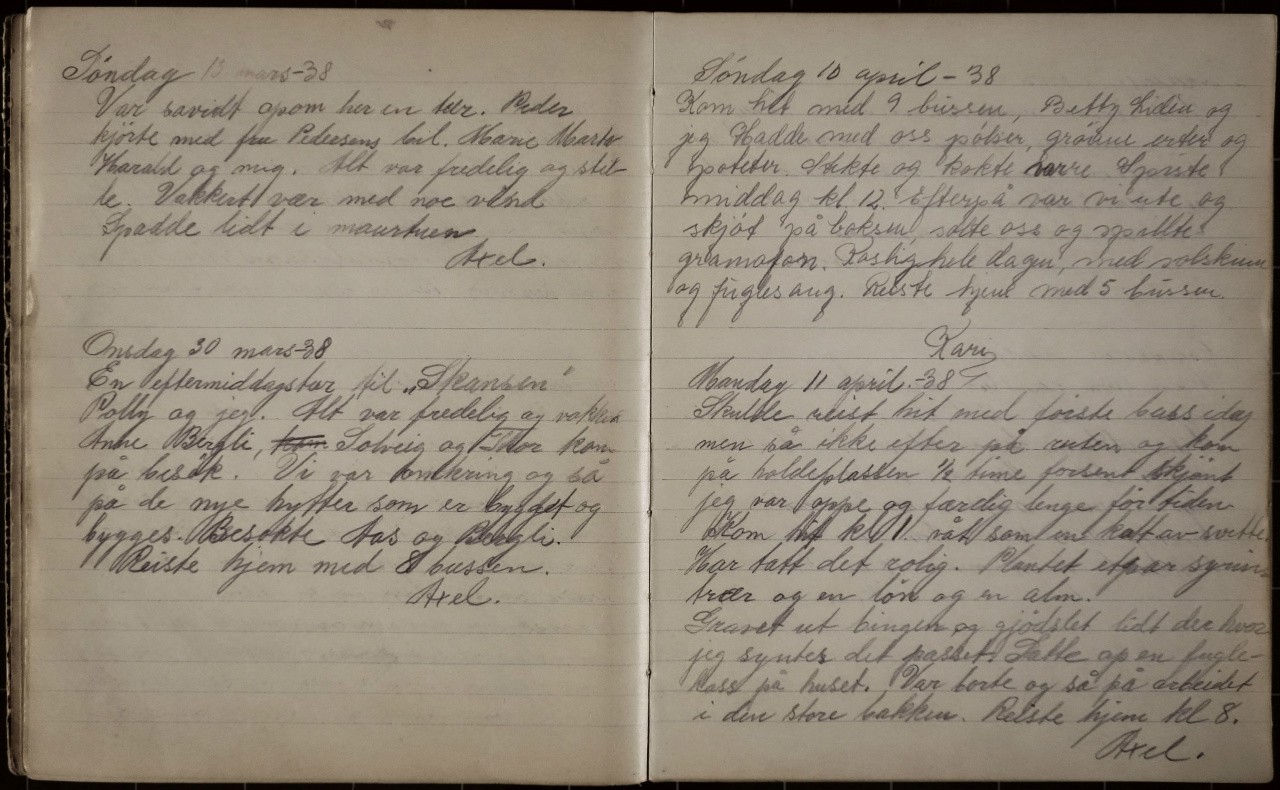 Søndag 13 mars-38
Var savidt opom her en tur. Peder
kjørte med fru Pedersens bil. Marie Marta
Harald og mig. Alt var fredelig og stil-
le. Vakkert vær med noe vind
Spadde lidt i maurtuen
Axel.
Onsdag 30 mars-38
En eftermiddagstur til "Skansen"
Polly og jeg. Alt var fredelig og vakker
Anne Bergli, Solveig og Thor kom
på besøk. Vi var omkring og så
på de nye hytter som er bygget og
bygges. Besøkte Aas og Bergli.
Reiste hjem med 8 bussen.
Axel.
Søndag 10 april - 38
Kom hit med 9 bussen, Betty Lidia og
jeg Hadde med oss pølser, grønne erter og
poteter. Stekte og kokte varre Spiste
middag kl 12. Efterpå var vi ute og
skjøt på boksen, solte oss og spillte
gramofon. Koslig hele dagen, med solskinn
og fuglesang. Reiste hjem med 5 bussen.
Kari
Mandag 11 april.-38
Skulde reist hit med første buss idag
men så ikke efter på ruten og kom
på holdeplassen 1/2 time forsent skjønt
jeg var oppe og færdig lenge før tiden
Kom hit kl 11 våt som en katt av svette.
Har tatt det rolig. Plantet et par syrin-
trær og en løn og en alm.
Gravet ut bingen og gjødslet lidt der hvor
jeg syntes det passet. Satte op en fugle-
kass på huset. Var borte og så på arbeidet
i den store bakken. Reiste hjem kl 8.
Axel.